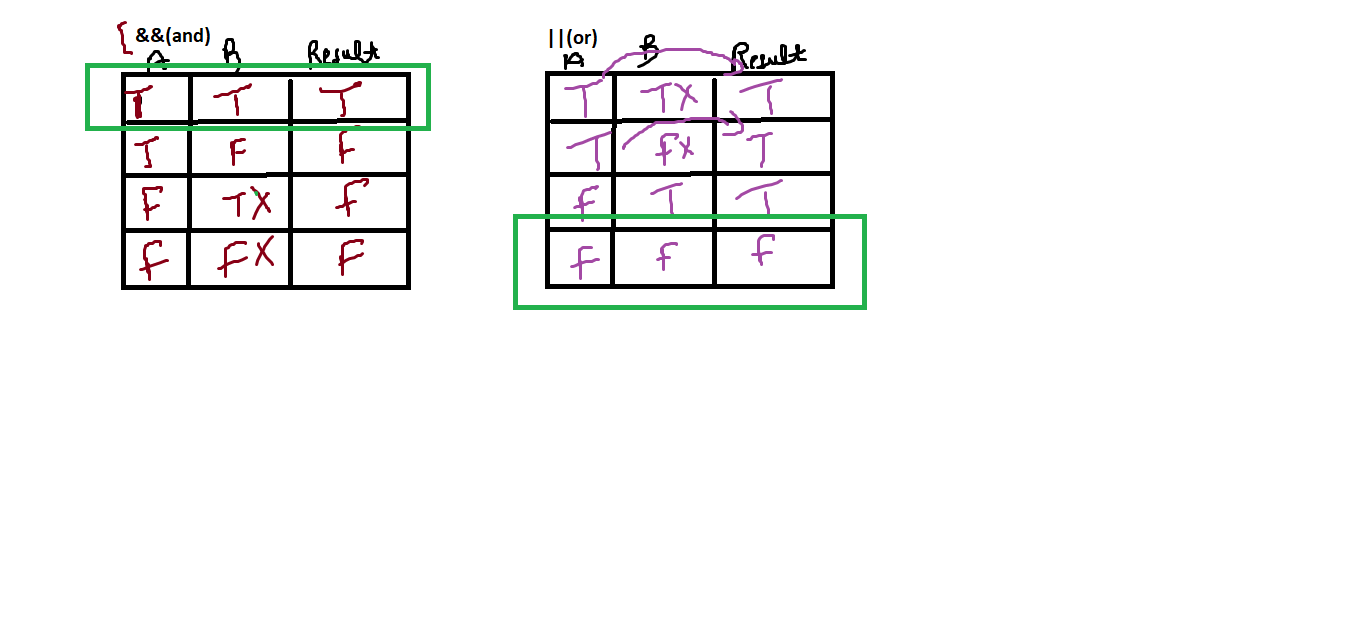 &&(and)
A B Result
T T T
T F F
F TX F
F FX F
||(or)
A B Result
T TX T
T FX T
F T T
F F F